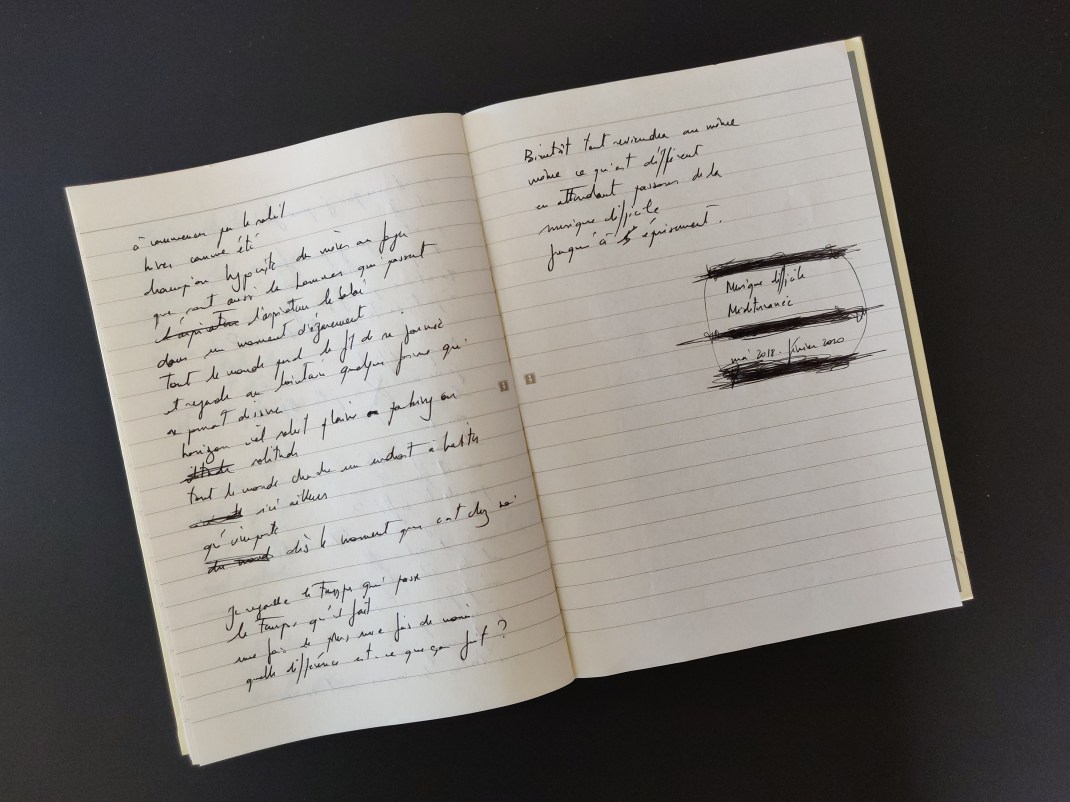 à commencer par le soleil
hiver comme été
champion hypocrite du
que sont aussi les hommes qui passent
l'aspirateur le balai
dans un moment d'égarement
tout le monde perd le fil de sa journée
et regarde au lointain quelque forme qui
se pourrait dessiner
horizon ciel soleil plaine parking ou
solitude
tout le monde cherche un endroit à habiter
ici ailleurs
qu'importe
dès le moment que c'est chez soi
Je regarde le temps qui passe
le temps qu'il fait
une fois de plus une fois de moins
quelle différence est-ce que ça fait ?
Bientôt tout reviendra au même
même ce qui est différent
en attendant passons de la
musique difficile
jusqu'à épuisement.
Musique difficile
Méditerranée
mai 2018 - février 2020